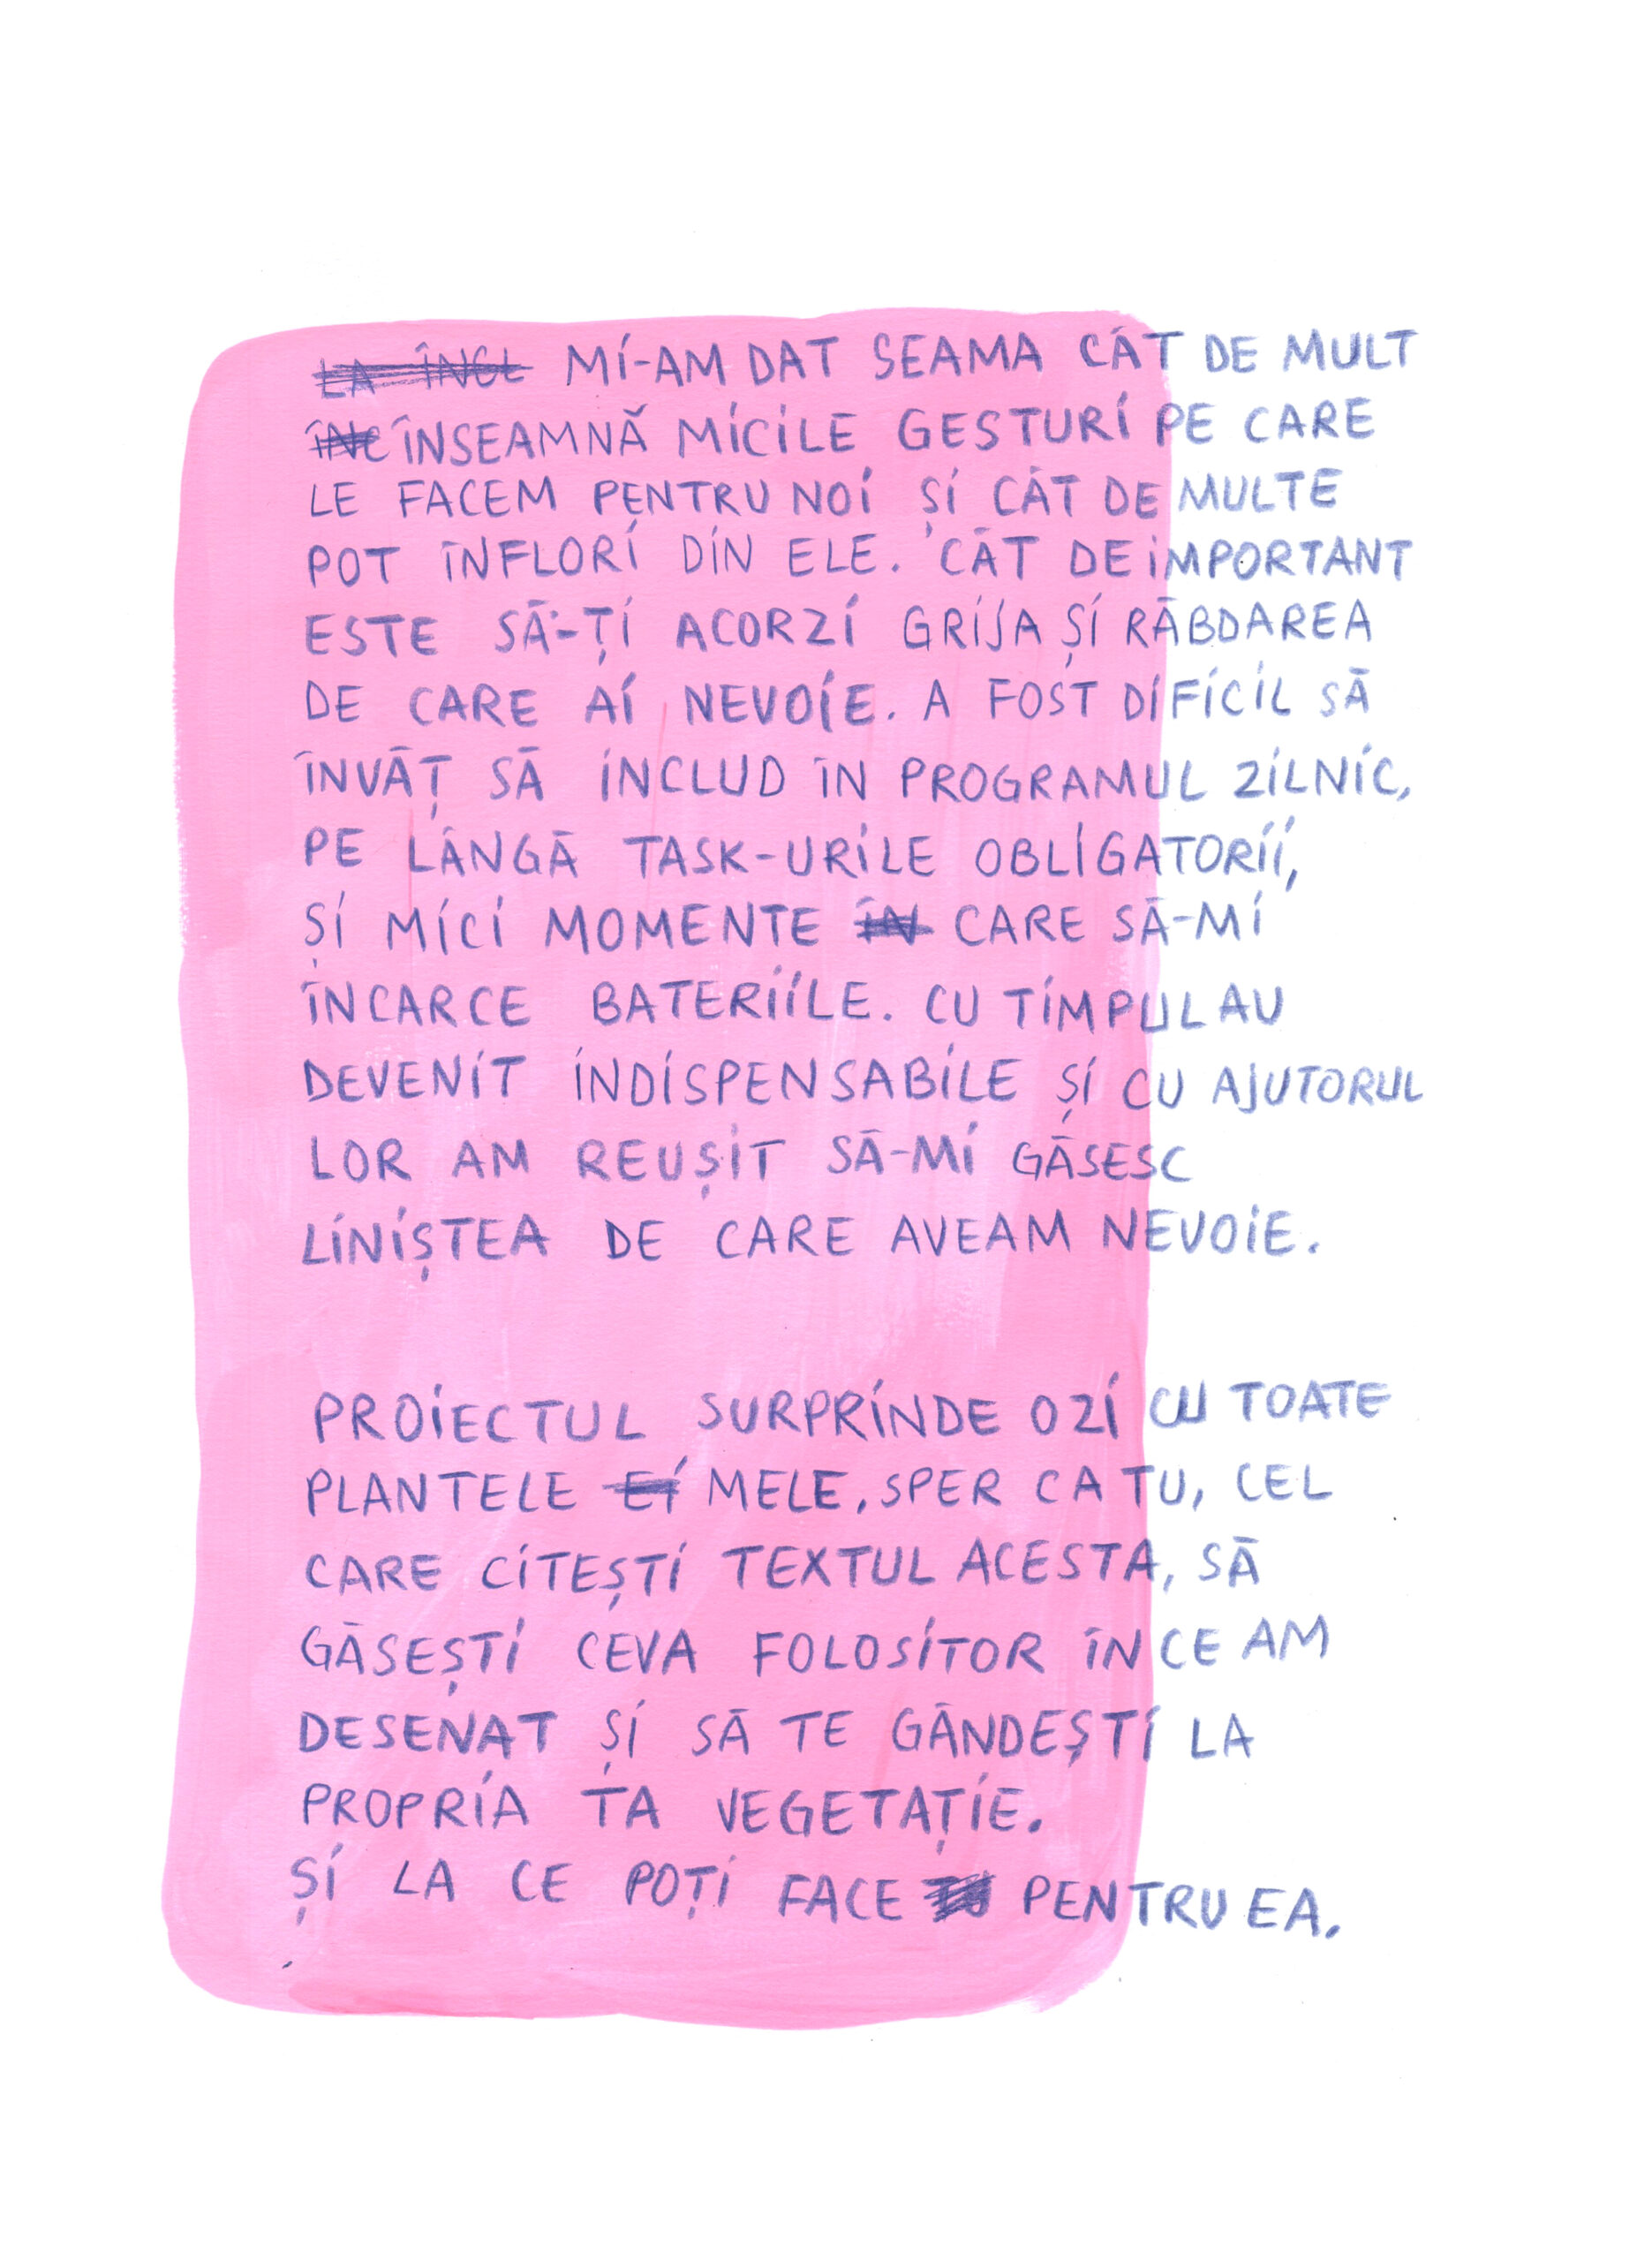 MI-AM DAT SEAMA CÂT DE MULT
ÎNSEAMNĂ MICILE GESTURI PE CARE
LE FACEM PENTRU NOI ȘI CÂT DE MULTE
POT ÎNFLORI DIN ELE. CÂT DE IMPORTANT
ESTE SĂ-ȚI ACORZI GRIJA ȘI RĂBDAREA
DE CARE AI NEVOIE. A FOST DIFICIL SĂ
ÎNVĂȚ SĂ INCLUD ÎN PROGRAMUL ZILNIC,
PE LÂNGĂ TASK-URILE OBLIGATORII,
ȘI MICI MOMENTE CARE SĂ-MI
ÎNCARCE BATERIILE. CU TIMPUL AU
DEVENIT INDISPENSABILE ȘI CU AJUTORUL
LOR AM REUȘIT SĂ-MI GĂSESC
LINIȘTEA DE CARE AVEAM NEVOIE.
PROIECTUL SURPRINDE O ZI CU TOATE
PLANTELE MELE. SPER CA TU, CEL
CARE CITEȘTI TEXTUL ACESTA, SĂ
GĂSEȘTI CEVA FOLOSITOR ÎN CE AM
DESENAT ȘI SĂ TE GÂNDEȘTI LA
PROPRIA TA VEGETAȚIE.
ȘI LA CE POȚI FACE PENTRU EA.